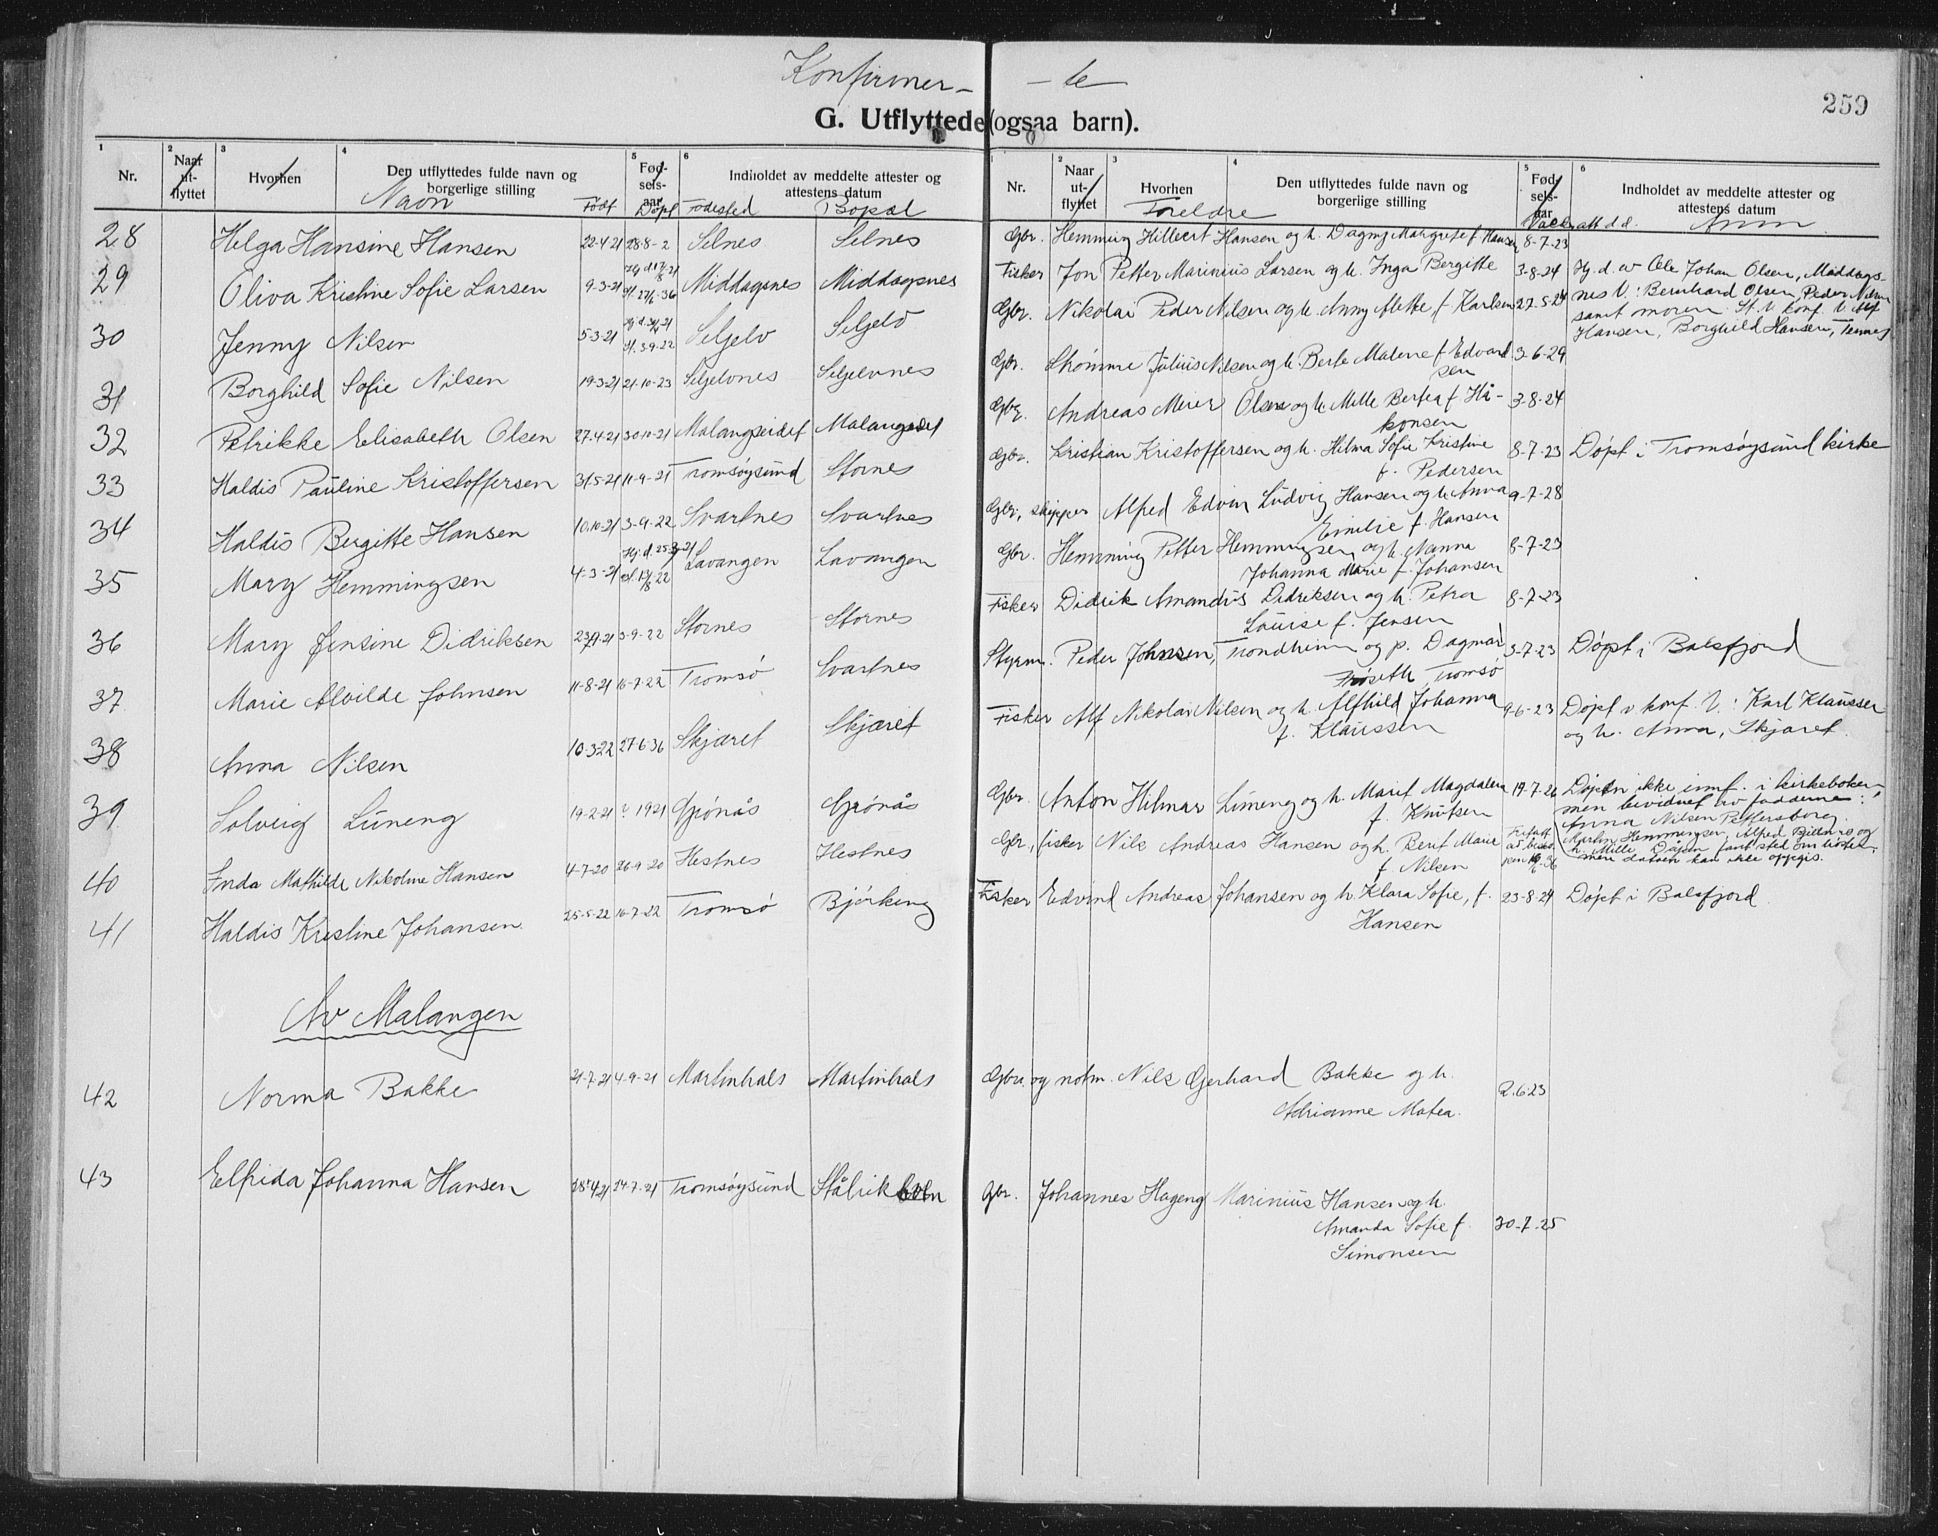 Konfirmer- -te
259
G. Utflyttede (ogsaa barn).
1 2 3 4 5 6
Nr. Naar ut-flyttet Hvorhen Den utflyttedes fulde navn og borgerlige stilling Fød-sels-aar Indholdet av meddelte attester og attestens datum
Navn Født Døpt Fødested Bopæl
1 2 3 4 5 6
Nr. Naar ut-flyttet Hvorhen Den utflyttedes fulde navn og borgerlige stilling Fød-sels-aar Indholdet av meddelte attester og attestens datum
Foreldre Vacc. att d.d. Anm.
28 Helga Hansine Hansen 22-4-21 28-8-2 Selnes Selnes
Gbr. Hemming Hilbert Hansen og h. Dagny Margrete f. Hansen 8-7-23
29 Oliva Kristine Sofie Larsen 9-3-21 Middagsnes Middagsnes
Fisker Jon Petter Marinius Larsen og h. Inga Bergitte 3-8-24 Hj. d. av Ole Johan Olsen, Middags-
nes V: Bernhard Olsen, Peder Nilsen
samt moren. St. v. konf. V. Alf
Hansen, Borghild Hansen, Tennes
30 Jenny Nilsen 5-3-21 st. 3-9-22 Seljelv Seljelv
Gbr. Nikolai Peder Nilsen og h. Anny Mette f. Karlsen 27-5-24
31 Borghild Sofie Nilsen 19-3-21 21-10-23 Seljelvnes Seljelvnes
Gbr. Skømme Julius Nilsen og h. Berte Malene f. Edvard
sen 3-6-29
32 Petrikke Elisabeth Olsen 27-4-21 30-10-21 Malangseidet Malangseidet
Gbr. Andreas Meier Olsen og h. Mille Bertea f. Hå-
konsen 3-8-24
33 Haldis Pauline Kristoffersen 31-5-21 11-9-21 Tromsøysund Stornes
Gbr. Kristian Kristoffersen og h. Hilma Sofie Kristine
f. Pedersen 8-7-23 Døpt i Tromsøysund kirke
34 Haldis Bergitte Hansen 10-10-21 3-9-22 Svartnes Svartnes
Gbr., skipper Alfred Edvin Ludvig Hansen og h. Anna
Emilie f. Hansen 9-7-28
35 Mary Hemmingsen 4-3-21 Lavangen Lavangen
Gbr. Hemming Petter Hemmingsen og h. Nanna
Johanna Marie f. Johansen 8-7-23
36 Mary Jensine Didriksen 3-9-22 Stornes Stornes
Fisker Didrik Amandus Didriksen og h. Petra
Louise f. Jensen 8-7-23
37 Marie Alvilde Johnsen 11-8-21 16-7-22 Tromsø Svartnes
Styrm. Peder Johnsen, Trondheim og p. Dagmar
Røseth, Tromsø 3-7-23 Døpt i Balsfjord
38 Anna Nilsen 10-3-22 27-6-36 Skjæret Skjæret
Fisker Alf Nikolai Nilsen og h. Alfhild Johanna
f. Klaussen 9-6-23 Døpt v. konf. V.: Karl Klaussen
og h. Anna, Skjæret.
39 Solveig Luneng 19-2-21 ? 1921 Grønås Grønås
Gbr. Anton Hilmar Luneng og h. Marit Magdalena
f. Knutsen 19-7-26 Døpen ikke innf. i kirkeboken
men bevidnet av fadderne:
Anna Nilsen Pettersborg,
Martin Hemmingsen, Alfred Bjerno og
h. Mille. Dåpen fant sted om høsten,
men datoen kan ikke oppgis.
40 Inda Mathilde Nikoline Hansen 4-7-20 26-9-20 Hestnes Hestnes
Gbr., fisker Nils Andreas Hansen og h. Berit Marie
f. Nilsen
41 Haldis Kristine Johansen 25-5-22 16-7-22 Tromsø Bjørkeng
Fisker Edvind Andreas Johansen og h. Klara Sofie, f.
Hansen 23-8-24 Døpt i Balsfjord
Av Malangen
42 Norma Bakke 21-7-21 4-9-21 Martinhals Martinhals
Gbr. og notm. Nils Gerhard Bakke og h.
Adrianne Matea. 2.6.23
43 Elfrida Johanna Hansen 28-4-21 24-7-21 Tromsøysund
Gbr. Johannes Hageng Marinius Hansen og h.
Amanda Sofie f.
Simonsen 30-7-25